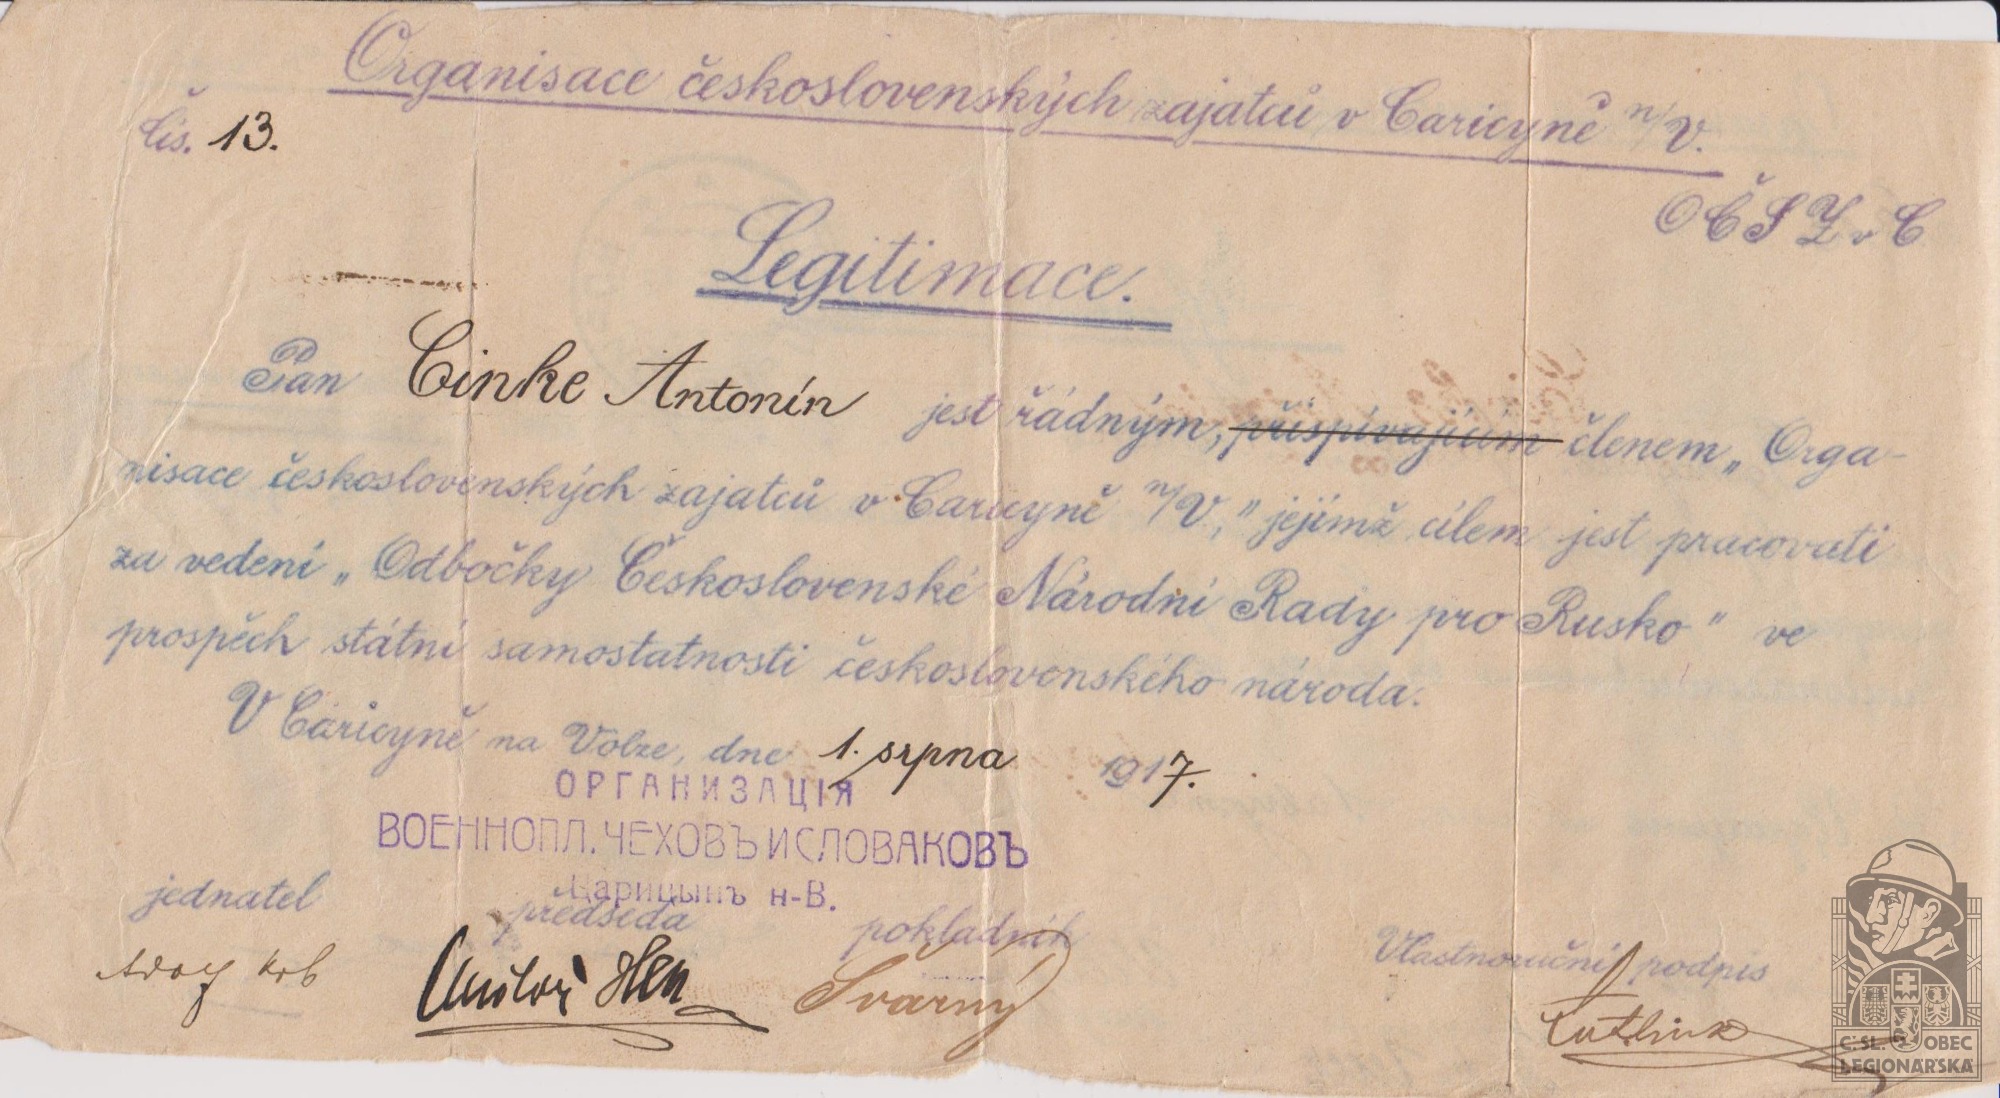 Organisace československých zajatců v Caricyně n/V.
Čís. 13.
OČSZvC
Legitimace.
Pan Cinke Antonín jest řádným, přispívajícím členem „Orga-
nisace československých zajatců v Caricyně n/V.," jejímž cílem jest pracovati
za vedení „Odbočky Československé Národní Rady pro Rusko" ve
prospěch státní samostatnosti československého národa.
V Caricyně na Volze, dne 1. srpna 1917.
ОРГАНИЗАЦІЯ
ВОЕННОПЛ. ЧЕХОВЪ И СЛОВАКОВЪ
Царицынъ н-В.
jednatel předseda pokladník Vlastnoruční podpis
Svarný
Č. SL. OBEC
LEGIONÁŘSKÁ